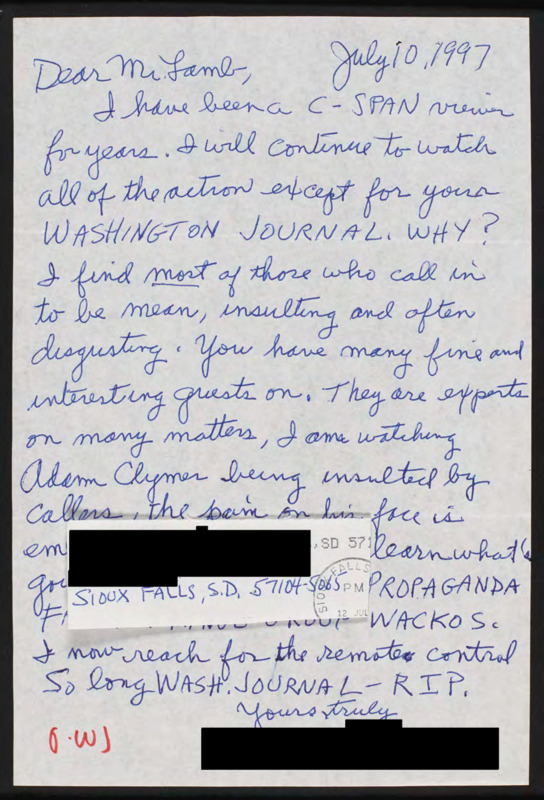 July 10, 1997
Dear Mr. Lamb,
I have been a C-SPAN viewer
for years. I will continue to watch
all of the action except for your
WASHINGTON JOURNAL. WHY?
I find most of those who call in
to be mean, insulting and often
disgusting. You have many fine and
interesting guests on. They are experts
on many matters, I am watching
Adam Clymer being insulted by
callers, the pain on his face is
em
, SD 571
learn what's
go
SIOUX FALLS, S.D. 57104-5065
SIOUX FALLS
PM
12 JUL
PROPAGANDA
WACKOS.
I now reach for the remote control
So long WASH. JOURNAL - R I P.
Yours truly
(.W)